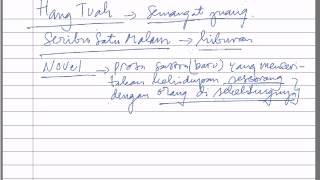 Hang Tuah → Semangat juang.
Seribu Satu Malam → hiburan
Novel → prosa sastra (baru) yang menceri-
takan kehidupan seseorang
dengan orang di sekelilingnya